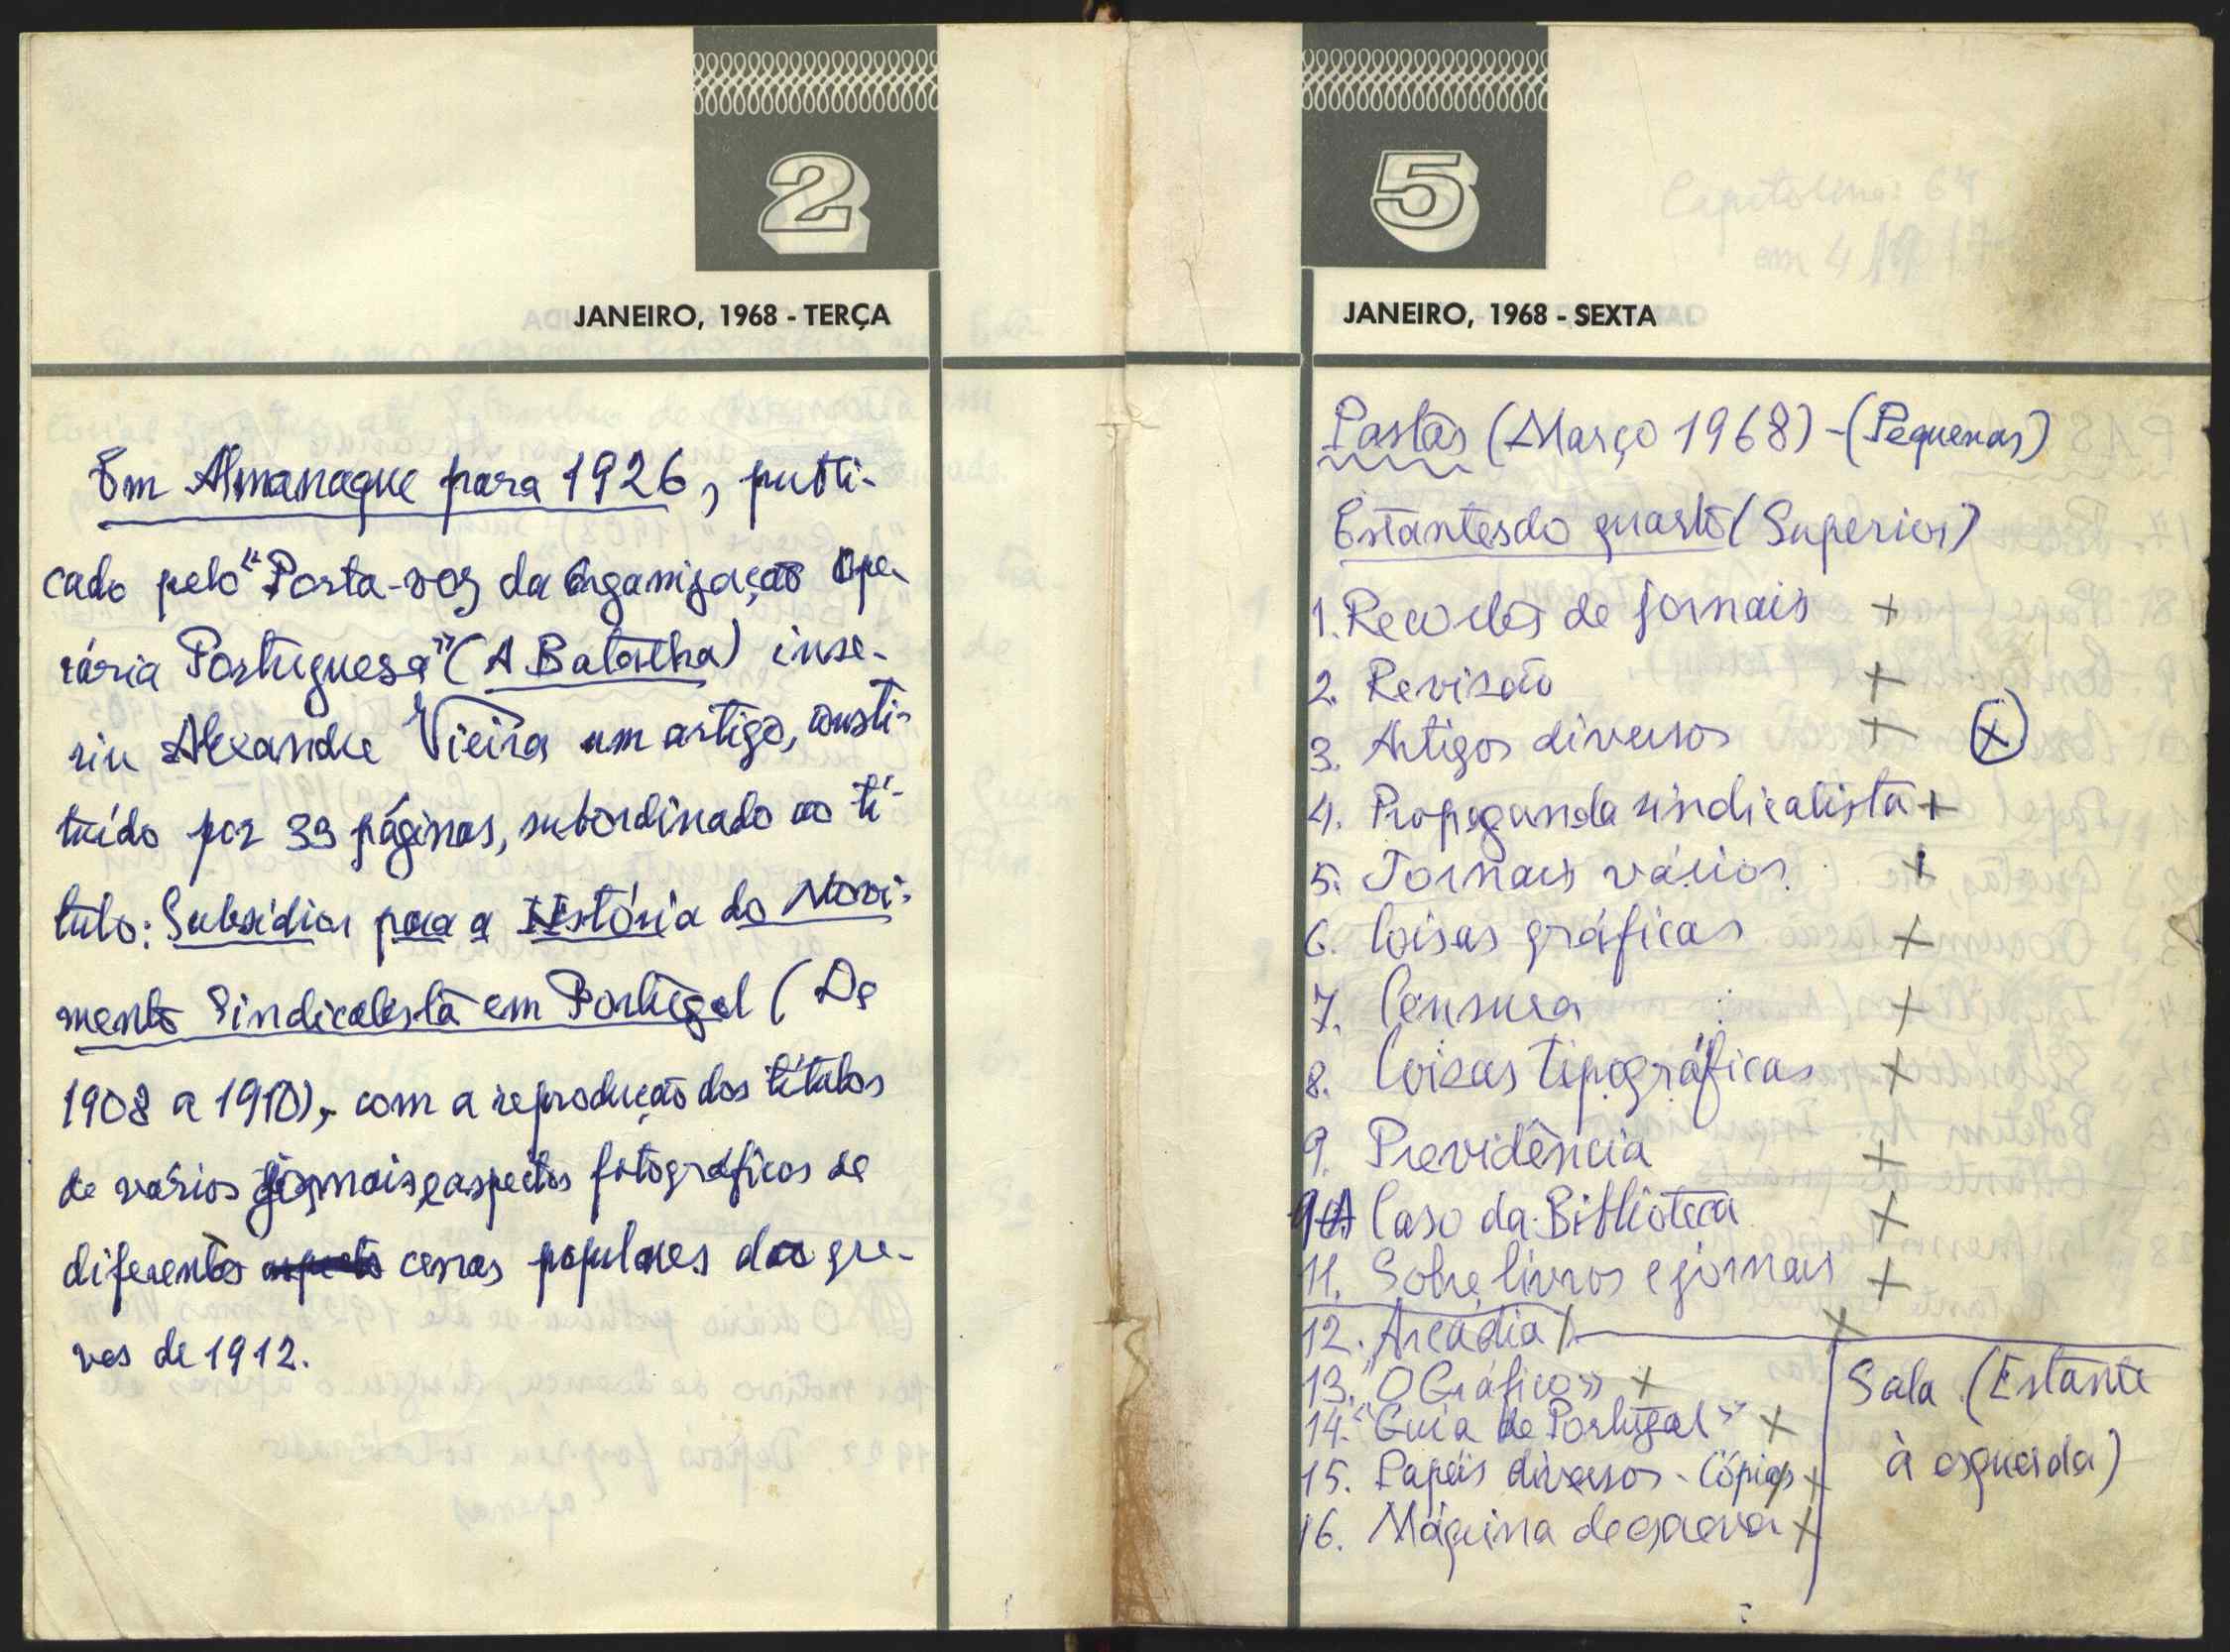 2
JANEIRO, 1968 - TERÇA
Em Almanaque para 1926, publi-
cado pelo "Porta-voz da Organização Ope-
rária Portuguesa" (A Batalha) inse-
riu Alexandre Vieira um artigo, consti-
tuído por 39 páginas, subordinado ao tí-
tulo: Subsídios para a História do Movi-
mento Sindicalista em Portugal (De
1908 a 1910), com a reprodução dos títulos
de vários jornais, e aspectos fotográficos de
diferentes cenas populares das gre-
ves de 1912.
5
Capitolina: 64
em 4
JANEIRO, 1968 - SEXTA
Pastas (Março 1968) - (Pequenas)
Estantes do quarto (Superior)
1. Recortes de jornais +
2. Revisão +
3. Artigos diversos + (x)
4. Propaganda sindicalista +
5. Jornais vários +
6. Coisas gráficas +
7. Censura +
8. Coisas tipográficas +
9. Previdência +
Caso da Biblioteca +
11. Sobre livros e jornais +
12. Arcádia +
13. "O Gráfico" +
14. "Guia de Portugal" +
15. Papéis diversos - Cópias +
16. Máquina de escrever +
Sala (Estante
à esquerda)